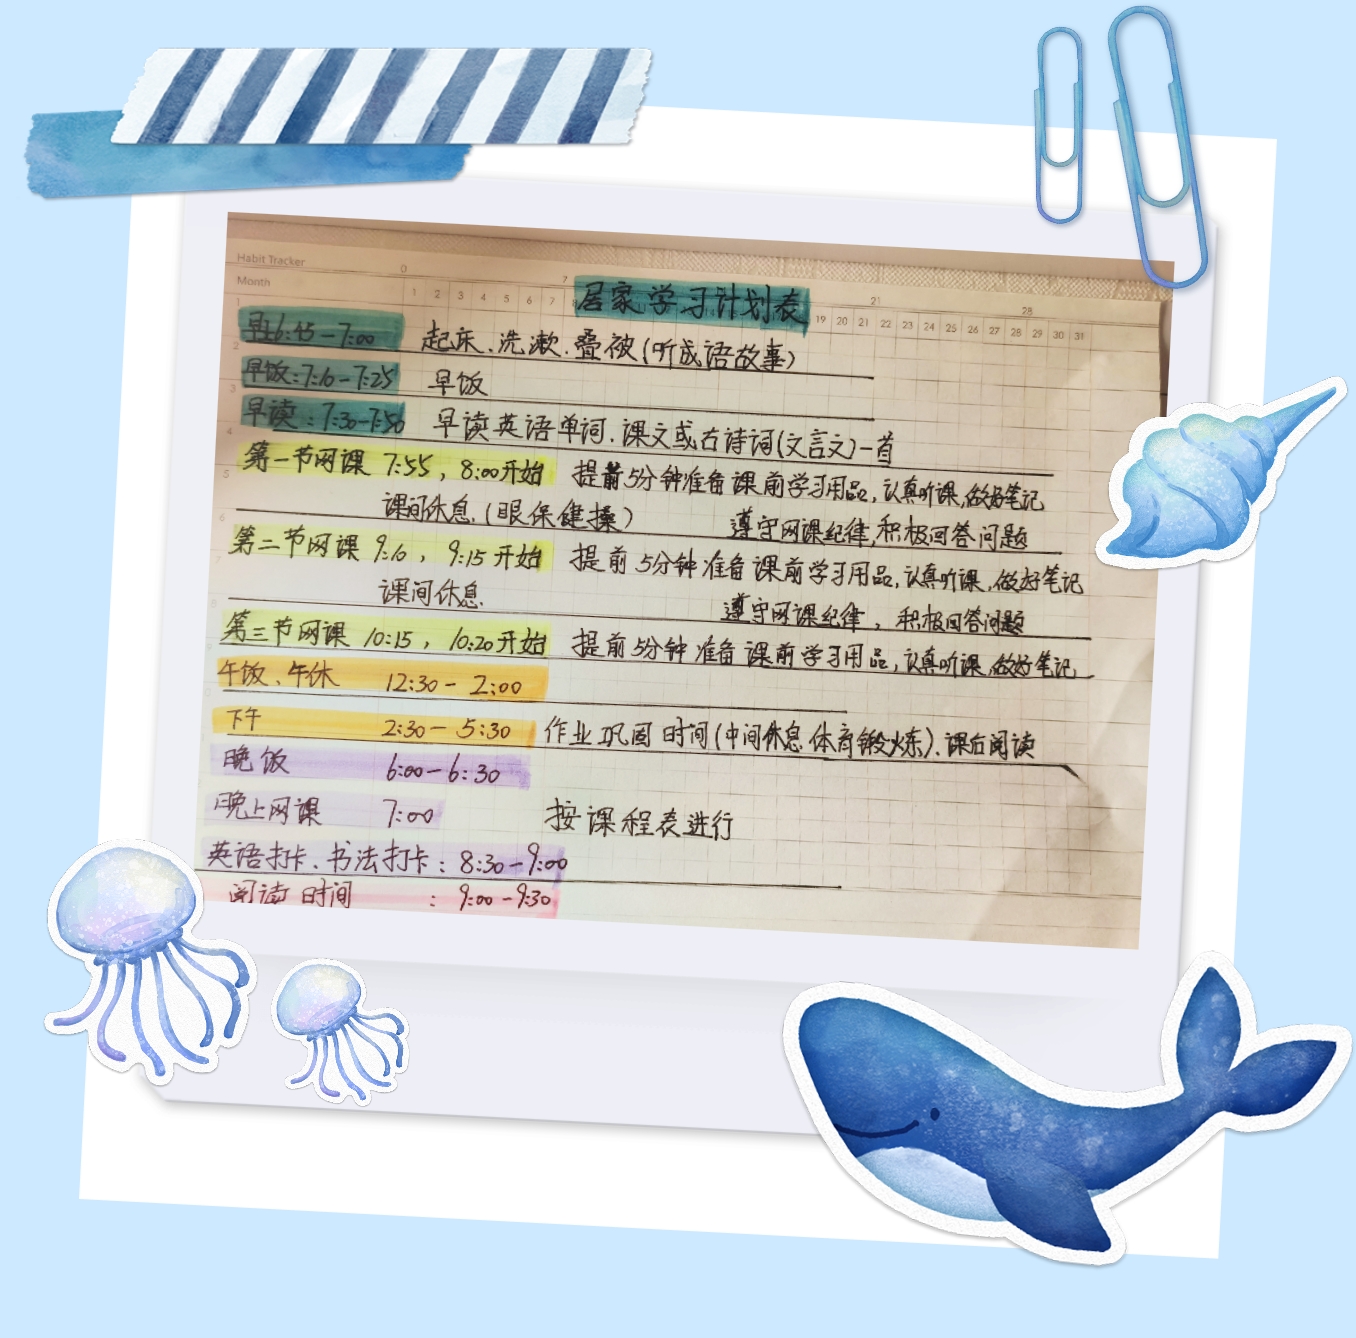 Habit Tracker
Month
0 7 21 28
1 2 3 4 5 6 7 8 19 20 21 22 23 24 25 26 27 28 29 30 31
居家学习计划表
早上6:45-7:00 起床、洗漱、叠被(听成语故事)
早饭:7:10-7:25 早饭
早读:7:30-7:50 早读英语单词、课文或古诗词(文言文)一首
第一节网课 7:55, 8:00开始 提前5分钟准备课前学习用品,认真听课,做好笔记
课间休息.(眼保健操) 遵守网课纪律,积极回答问题
第二节网课 9:10, 9:15开始 提前5分钟准备课前学习用品,认真听课,做好笔记
课间休息. 遵守网课纪律,积极回答问题
第三节网课 10:15, 10:20开始 提前5分钟准备课前学习用品,认真听课,做好笔记
午饭、午休 12:30-2:00
下午 2:30-5:30 作业巩固时间(中间休息体育锻炼)、课后阅读
晚饭 6:00-6:30
晚上网课 7:00 按课程表进行
英语打卡、书法打卡:8:30-9:00
阅读时间 : 9:00-9:30